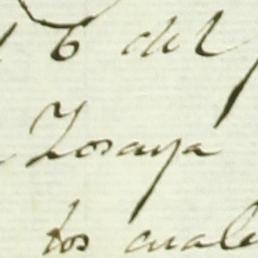 6 del
Zoraya
los cuale